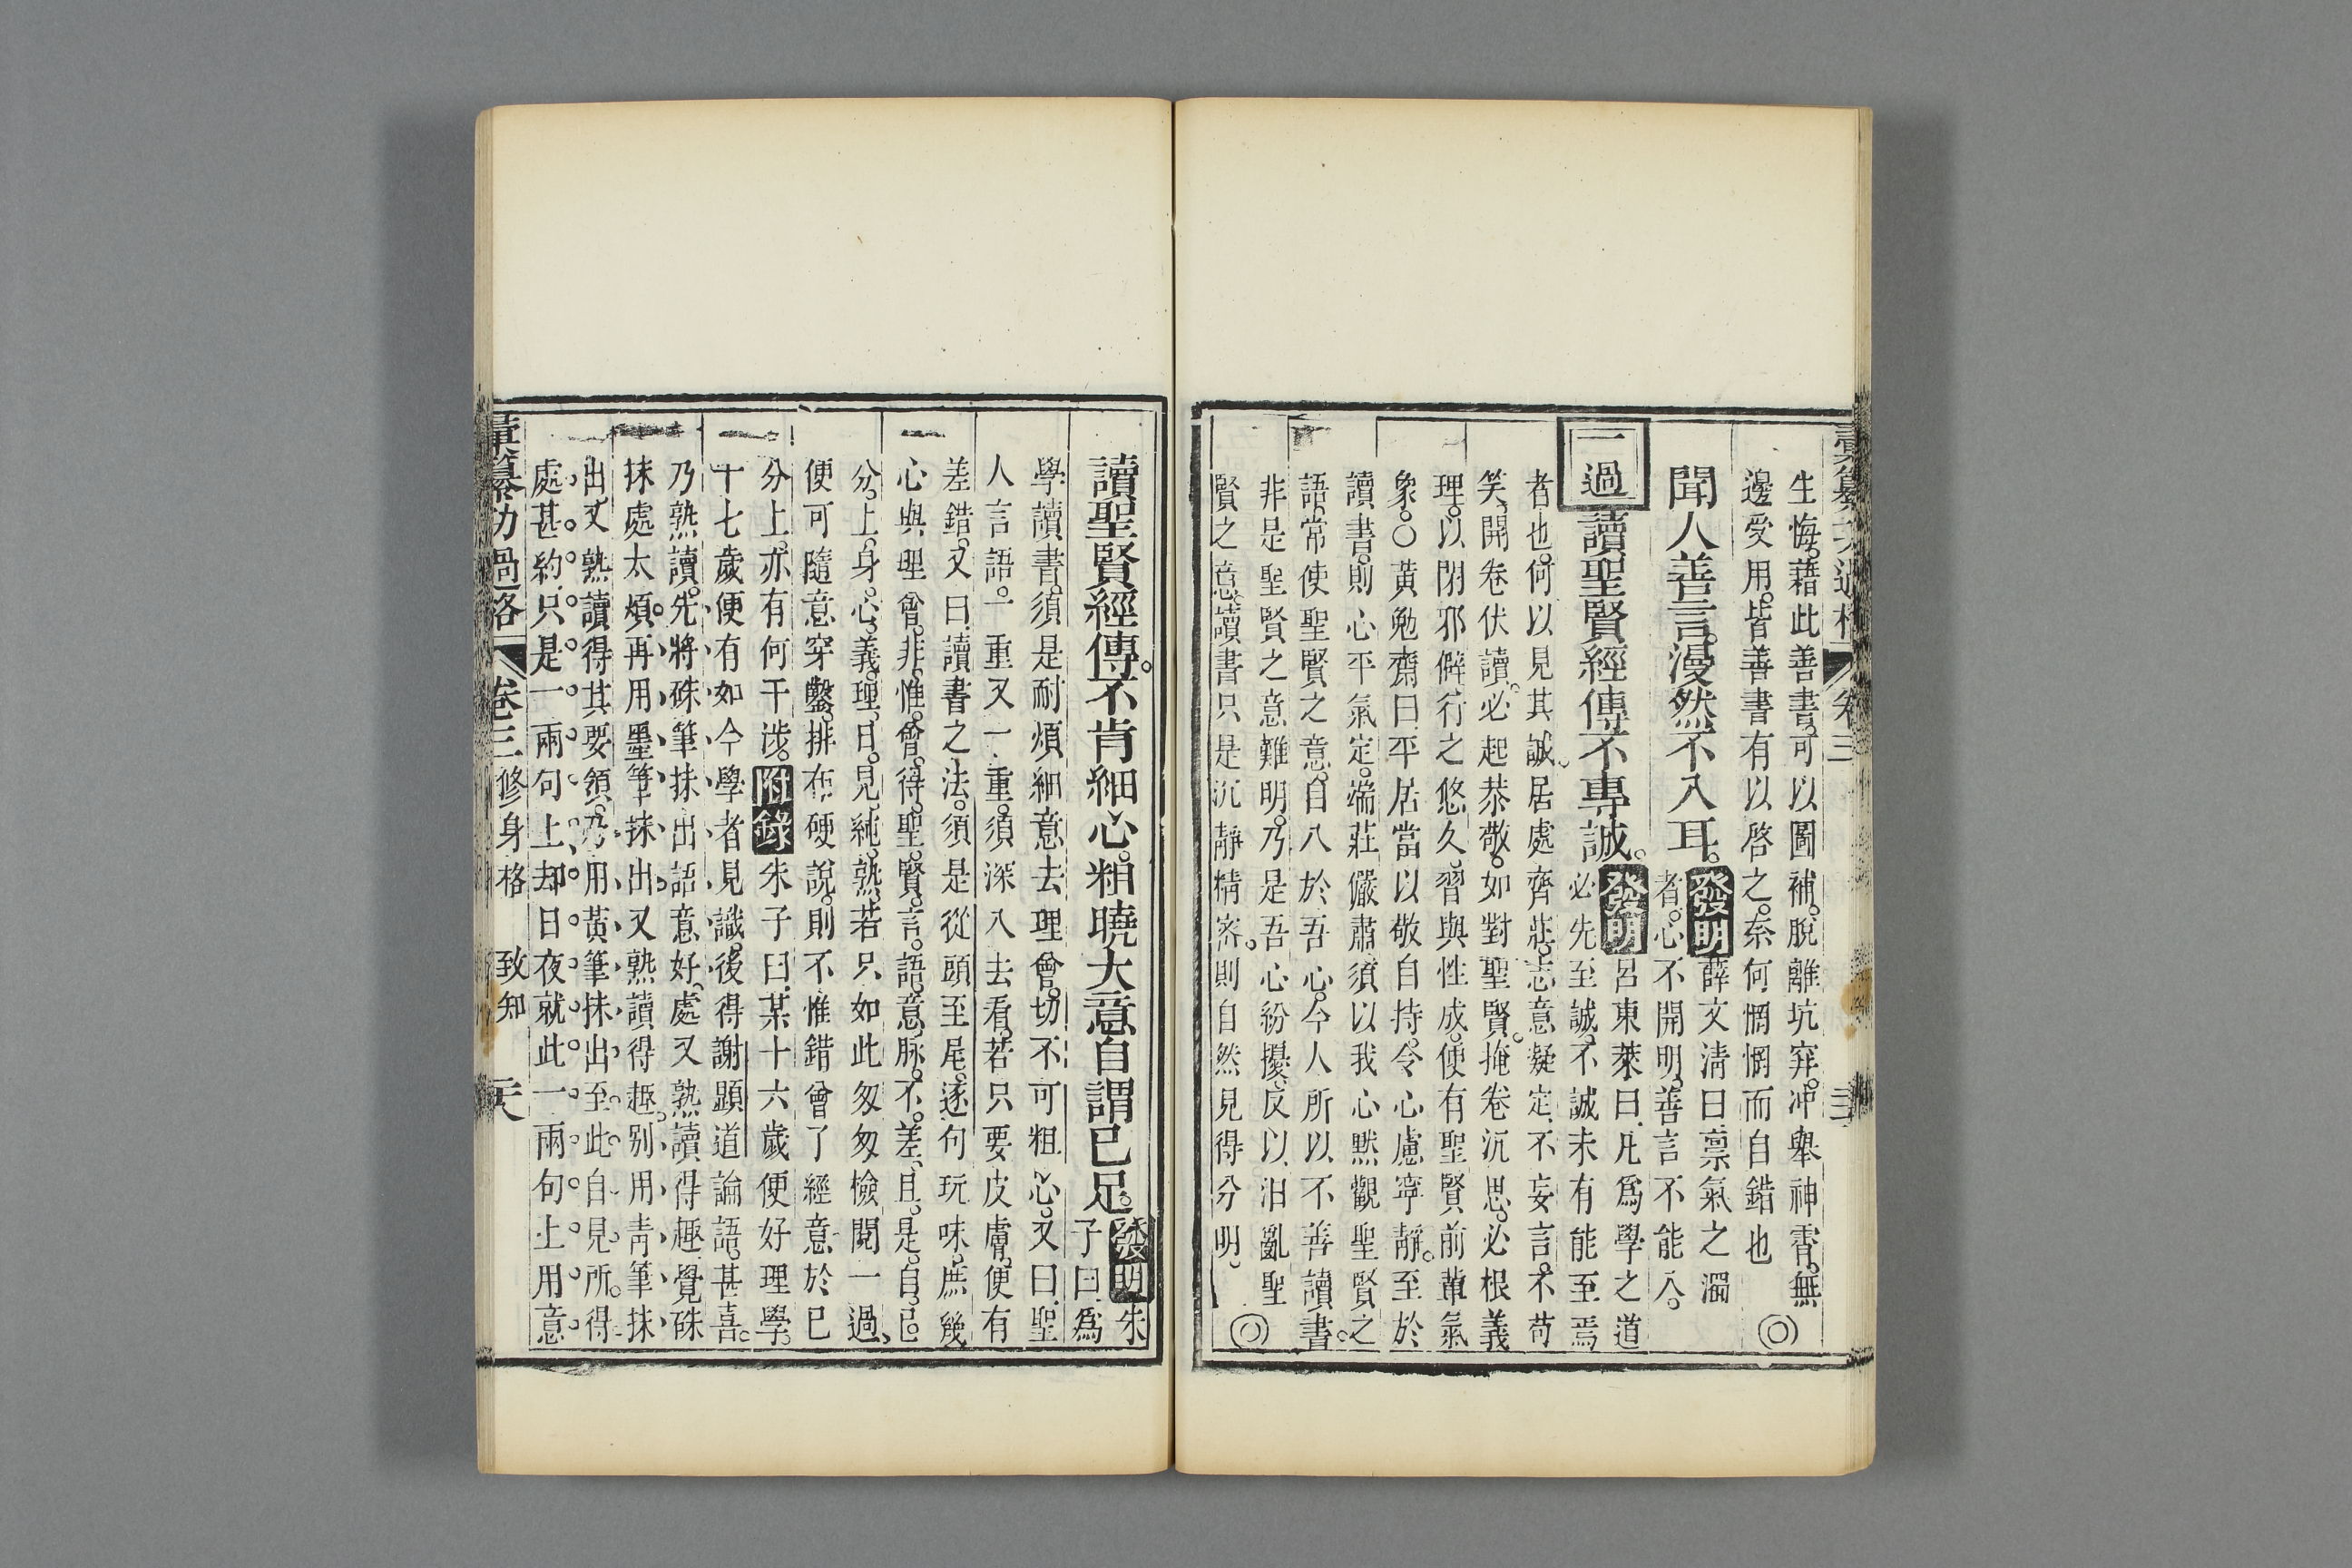 彚纂功過格 卷三
生悔。藉此善書。可以圖補。脫離坑穽。冲舉神霄。無
邊受用。皆善書有以啓之。奈何惘惘而自錯也 ◎
聞人善言。漫然不入耳。發明 薛文淸曰。禀氣之濁
者。心不開明。善言不能入。
一過 讀聖賢經傳不專誠。發明 呂東萊曰。凡爲學之道
必先至誠。不誠未有能至焉
者也。何以見其誠。居處齊莊。志意凝定。不妄言。不苟
笑。開卷伏讀。必起恭敬。如對聖賢。掩卷沉思。必根義
理。以閉邪僻。行之悠久。習與性成。便有聖賢前輩氣
象。○黃勉齋曰。平居當以敬自持。令心慮寧靜。至於
讀書。則心平氣定。端莊儼肅。須以我心默觀聖賢之
語。常使聖賢之意。自入於吾心。今人所以不善讀書。
非是聖賢之意難明。乃是吾心紛擾。反以汨亂聖
賢之意。讀書只是沉靜精密。則自然見得分明。◎
讀聖賢經傳。不肯細心。粗曉大意自謂已足。發明 朱
子曰。爲
學讀書。須是耐煩細意去理會。切不可粗心。又曰。聖
人言語。一重又一重。須深入去看。若只要皮膚。便有
差錯。又曰。讀書之法。須是從頭至尾。逐句玩味。庶幾
心與理會。非惟會得聖賢言語意脉不差。且是自己
分上。身心義理。日見純熟。若只如此匆匆檢閱一過。
便可隨意穿鑿。排布硬說。則不惟錯會了經意。於已
分上。亦有何干涉。附錄 朱子曰。某十六歲便好理學。
十七歲便有如今學者見識。後得謝顯道論語。甚喜。
乃熟讀。先將硃筆抹出語意好處。又熟讀得趣。覺硃
抹處太煩。再用墨筆抹出。又熟讀得趣。別用靑筆抹
出。又熟讀得其要領。乃用黃筆抹出。至此自見所得
處甚約。只是一兩句上。却日夜就此一兩句上用意
彚纂功過格 卷三 修身格 致知 天